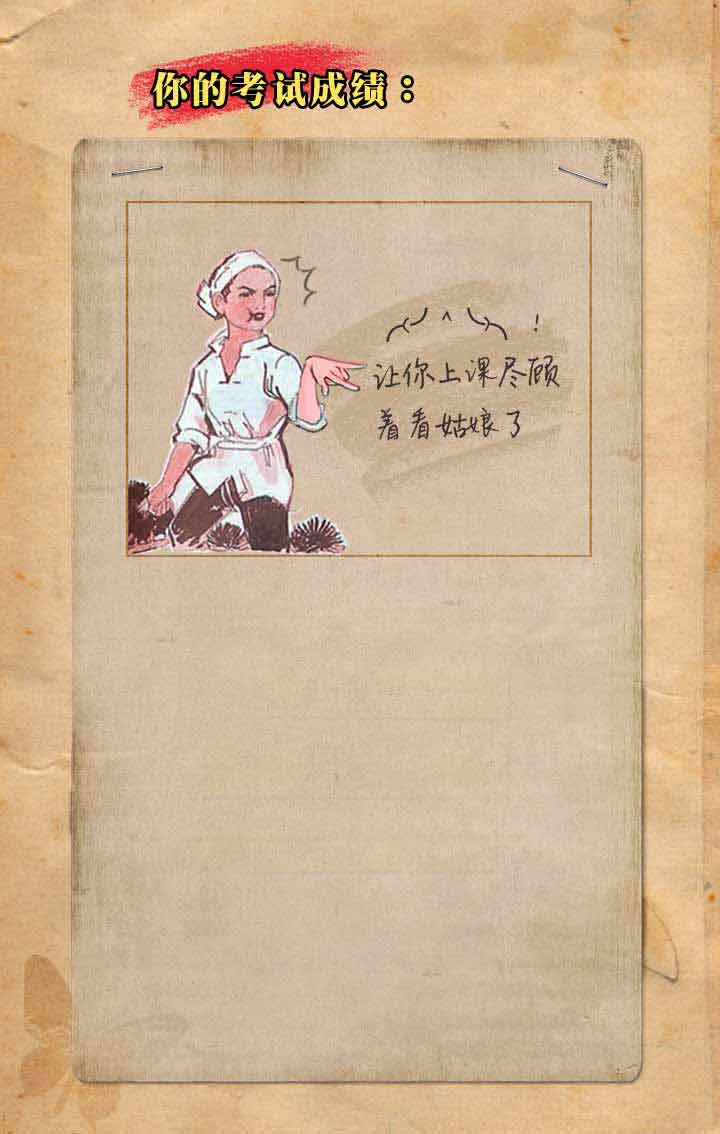 你的考试成绩：
让你上课尽顾
着看姑娘了